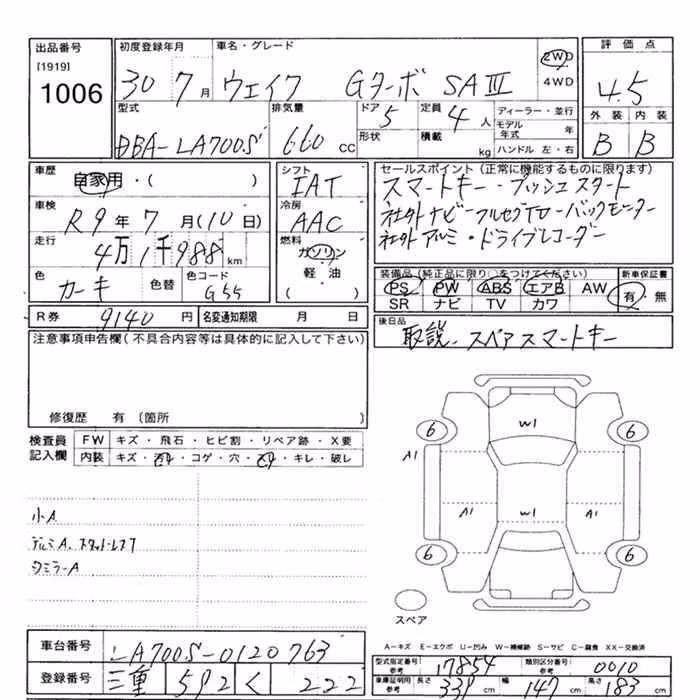 出品番号
[1919]
1006
初度登録年月
30 7月
車名・グレード
ウェイク Gターボ SAⅢ
2WD
4WD
評価点
4.5
外装 内装
B B
型式
DBA-LA700S
排気量
660 CC
ドア
5
形状
定員
4 人
積載
kg
ディーラー・並行
モデル年式 年
ハンドル 左・右
車歴
自家用・( )
車検
R9年7月(10日)
走行
4万1千988km
色
カーキ
色替
色コード
G55
シフト
IAT
冷房
AAC
燃料
ガソリン
軽・油
( )
セールスポイント(正常に機能するものに限ります)
スマートキー・プッシュスタート
社外ナビーフルセグTV・バックモニター
社外アルミ・ドライブレコーダー
装備品(純正品に限り○をつけてください)
PS PW ABS エアB AW
SR ナビ TV カワ
新車保証書
有・無
R券 9140 円
名変通知期限 月 日
後日品
取説、スペアスマートキー
注意事項申告欄(不具合内容等は具体的に記入して下さい)
修復歴 有(箇所 )
検査員
記入欄
FW キズ・飛石・ヒビ割・リペア跡・X要
内装 キズ・・コゲ・穴・・キレ・破レ
小A
アルミA、スタットレス7
ミラーA
W1
6 6
A1
A1 W1 A1
6 6
スペア
A-キズ E-エクボ U-凹み W-補修跡 S-サビ C-腐食 XX-交換済
車台番号 LA700S-0120763
登録番号 三重 592 く 222
型式指定番号
参考 17854
類別区分番号
参考 0010
車庫証明用
参考
長さ 339 cm 幅 147 cm 高さ 183 cm